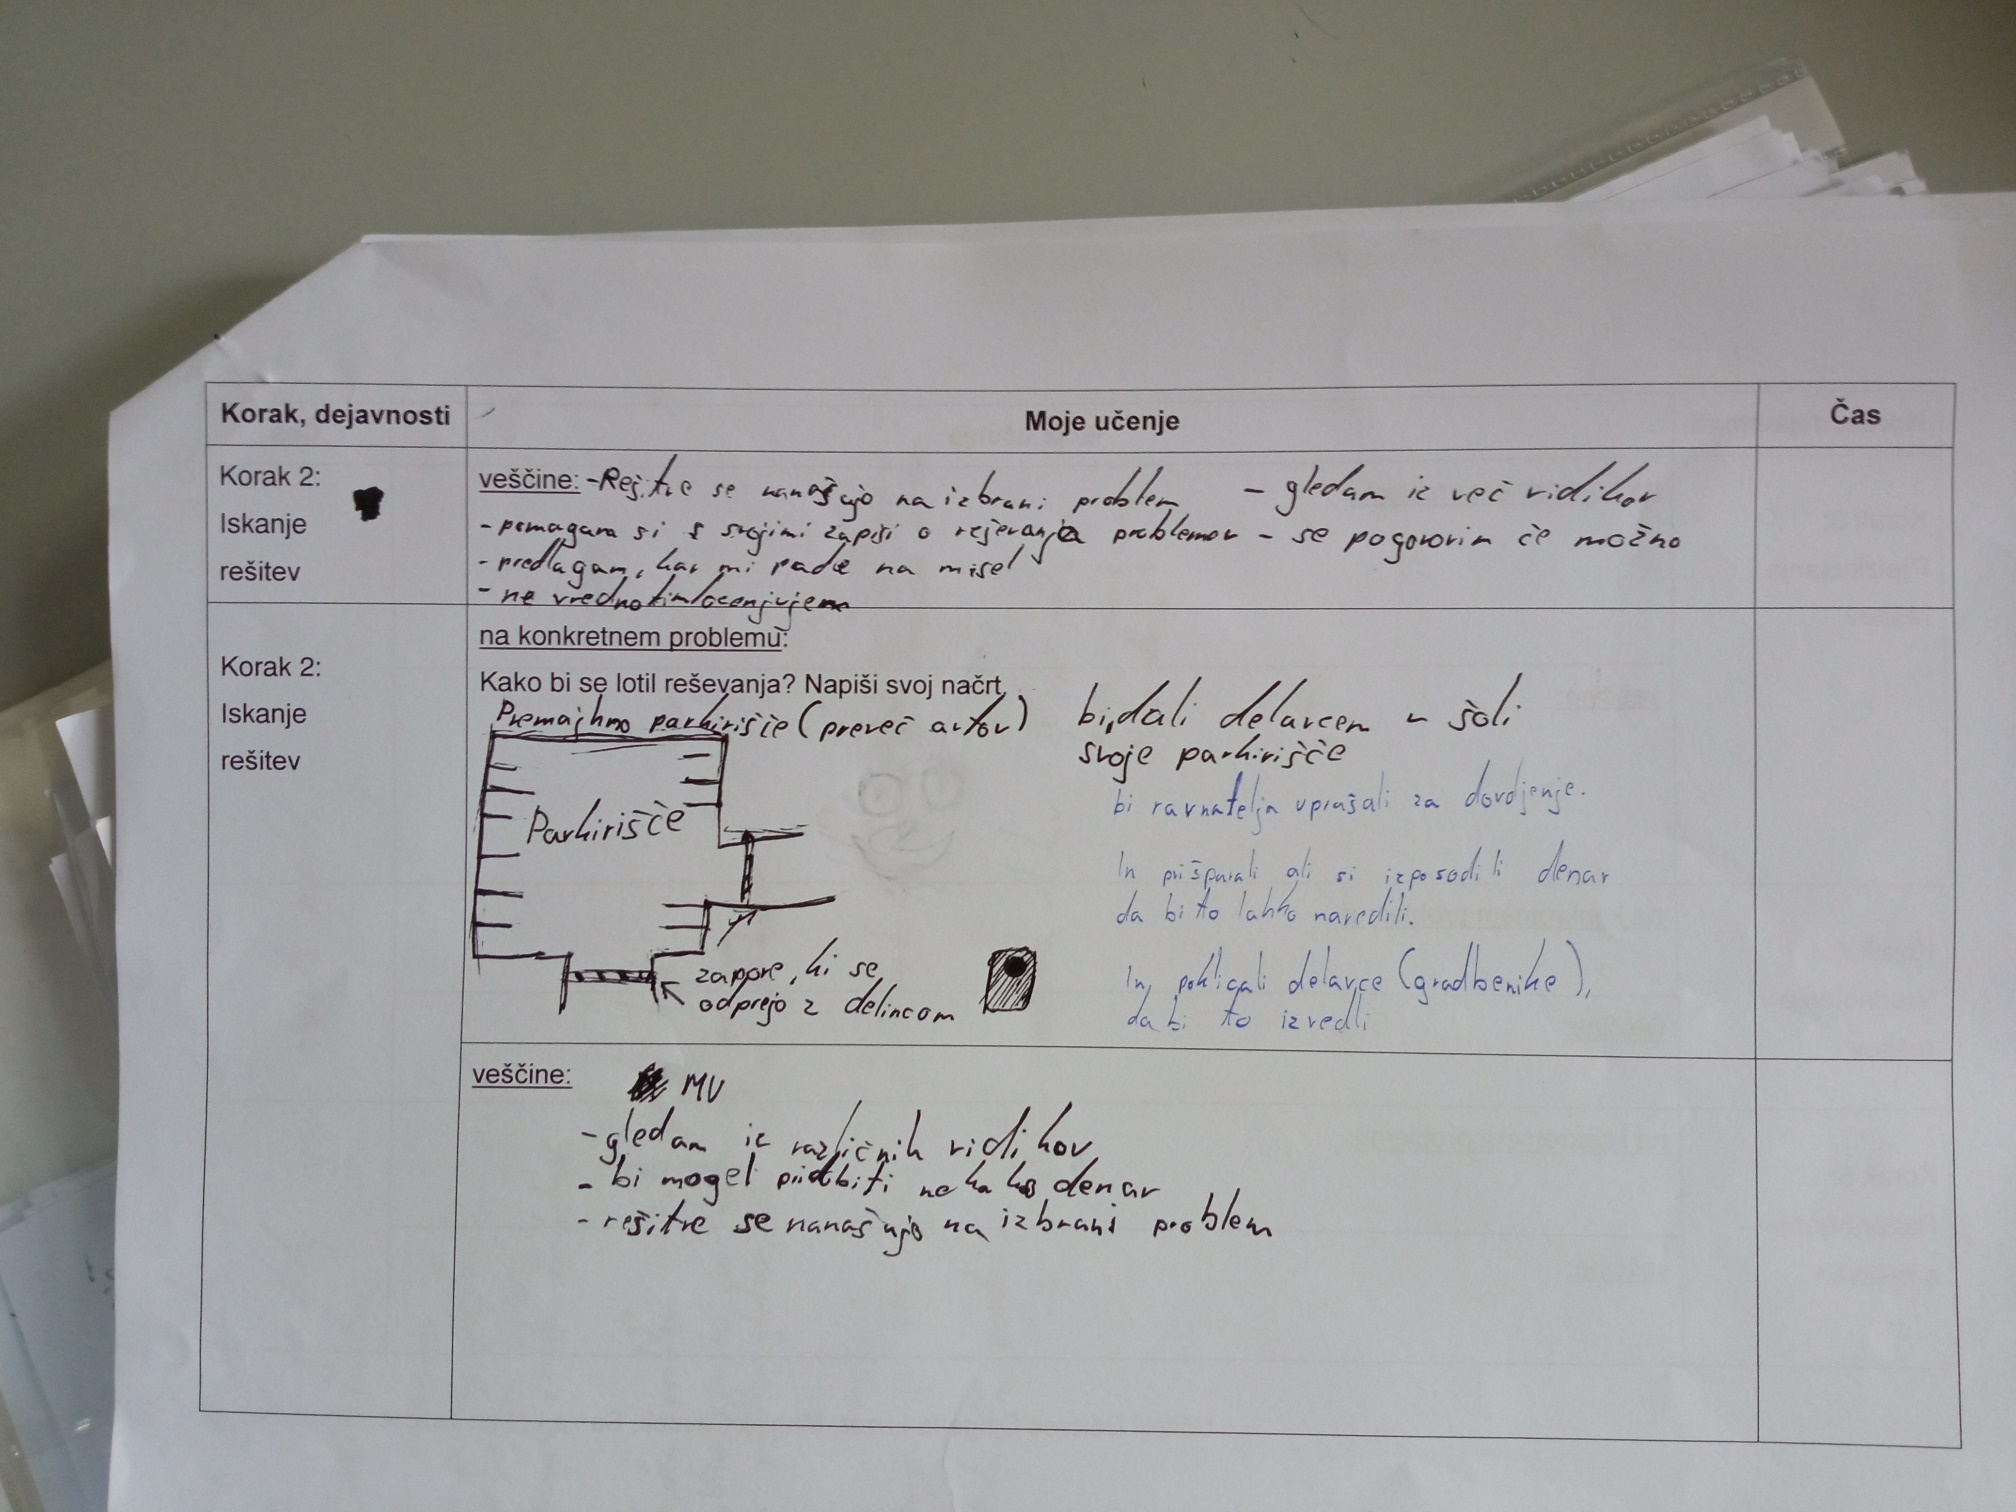 Korak, dejavnosti
Moje učenje
Čas
Korak 2:
Iskanje
rešitev
veščine: -Rešitve se nanašujo na izbrani problem - gledam iz več vidikov
- pomagam si s svojimi zapisi o reševanja problemov - se pogovorim če možno
- predlagam, kar mi pade na misel
- ne vrednotim/ocenjujem
Korak 2:
Iskanje
rešitev
na konkretnem problemu:
Kako bi se lotil reševanja? Napiši svoj načrt.
Premajhno parkirišče (preveč avtov)
Parkirišče
zapore, ki se
odprejo z delincom
bi dali delavcem v šoli
svoje parkirišče
bi ravnatelja uprašali za dovdjenje.
In prišparali ali si izposodili denar
da bi to lahko naredili.
In poklicali delavce (gradbenike),
da bi to izvedli
veščine:
MV
- gledam iz različnih vidikov
- bi mogel pridobiti denar
- rešitve se nanašujo na izbrani problem